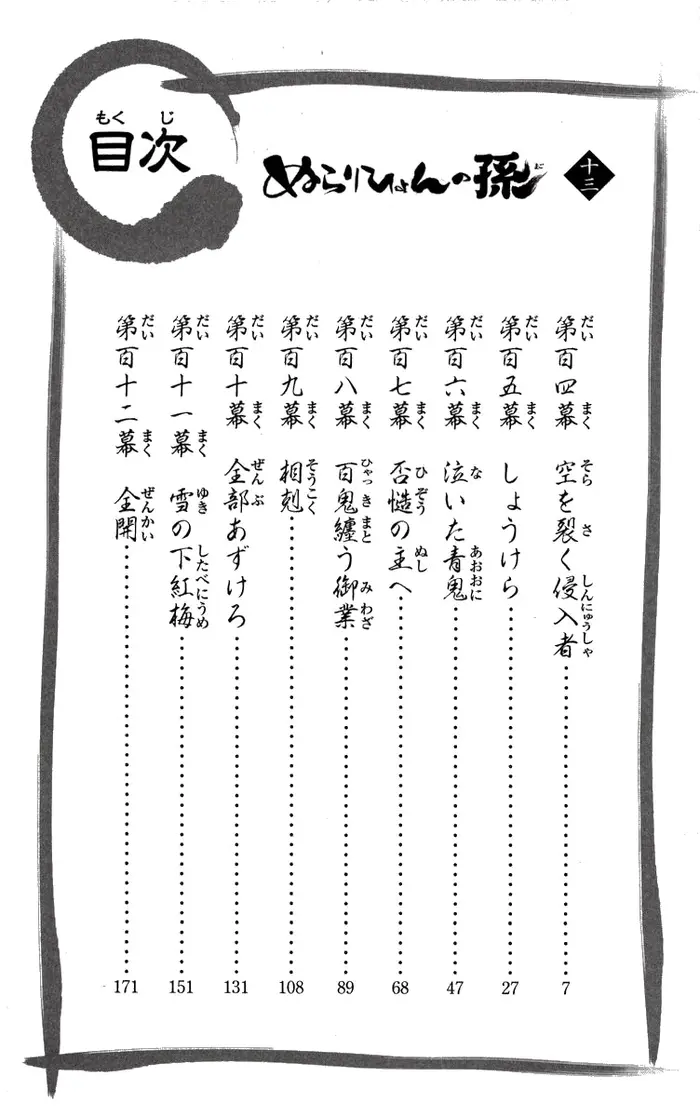 目次
もくじ
ぬらりひょんの孫
十三
第百四幕 空を裂く侵入者……7
第百五幕 しょうけら……27
第百六幕 泣いた青鬼……47
第百七幕 否慥の主へ……68
第百八幕 百鬼纏う御業……89
第百九幕 相剋……108
第百十幕 全部あずけろ……131
第百十一幕 雪の下紅梅……151
第百十二幕 全開……171